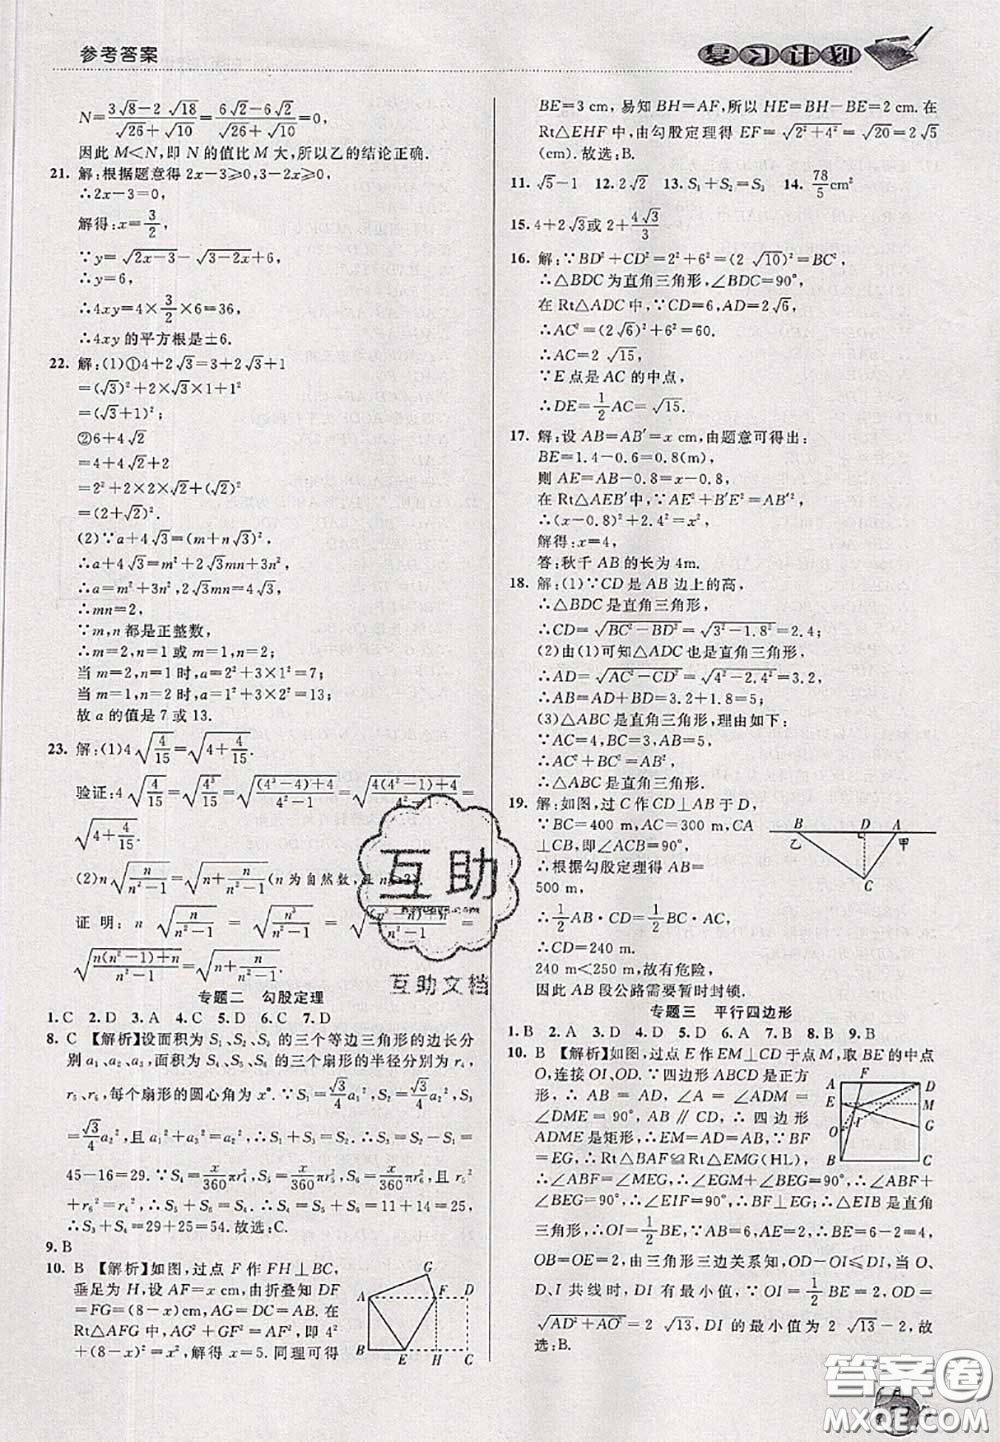 参考答案
复习计划
N=\frac{3\sqrt{8}-2\sqrt{18}}{\sqrt{26}+\sqrt{10}}=\frac{6\sqrt{2}-6\sqrt{2}}{\sqrt{26}+\sqrt{10}}=0,
因此M<N,即N的值比M大,所以乙的结论正确.
21. 解:根据题意得2x-3≥0,3-2x≥0,
∴2x-3=0,
解得:x=\frac{3}{2},
∵y=\sqrt{2x-3}-\sqrt{3-2x}+6,
∴y=6,
∴4xy=4×\frac{3}{2}×6=36,
∴4xy的平方根是±6.
22. 解:(1)①4+2√3=3+2√3+1
=(√3)²+2×√3×1+1²
=(√3+1)²;
②6+4√2
=4+4√2+2
=2²+2×2×√2+(√2)²
=(2+√2)².
(2)∵a+4√3=(m+n√3)²,
∴a+4√3=m²+2√3mn+3n²,
∴a=m²+3n²,2√3mn=4√3,
∴mn=2,
∵m,n都是正整数,
∴m=2,n=1或m=1,n=2;
当m=2,n=1时,a=2²+3×1²=7;
当m=1,n=2时,a=1²+3×2²=13.
故a的值是7或13.
23. 解:(1)4\sqrt{\frac{4}{15}}=\sqrt{4+\frac{4}{15}}.
验证:4\sqrt{\frac{4}{15}}=\sqrt{\frac{4³}{15}}=\sqrt{\frac{(4³-4)+4}{4²-1}}=\sqrt{\frac{4(4²-1)+4}{4²-1}}=
\sqrt{4+\frac{4}{15}}.
(2)n\sqrt{\frac{n}{n²-1}}=\sqrt{n+\frac{n}{n²-1}}(n为自然数,且n≥3).
证明:n\sqrt{\frac{n}{n²-1}}=\sqrt{\frac{n³}{n²-1}}=\sqrt{\frac{n³-n)+n}{n²-1}}=
\sqrt{\frac{n(n²-1)+n}{n²-1}}=\sqrt{n+\frac{n}{n²-1}}.
专题二 勾股定理
1.C 2.D 3.C 4.C 5.D 6.C 7.D
8. C 【解析】设面积为S₁、S₂、S₃的三个等边三角形的边长分
别a₁、a₂、a₃,面积为S₄、S₅、S₆的三个扇形的半径分别为r₄、
r₅、r₆,每个扇形的圆心角为x°.∵S₁=\frac{√3}{4}a₁²,S₂=\frac{√3}{4}a₂²,S₃=
\frac{√3}{4}a₃²,且a₁²+a₂²=a₃²,∴S₁+S₂=S₃.∴S₃=S₁+S₂=
45-16=29.∵S₄=\frac{x}{360}πr₄²,S₅=\frac{x}{360}πr₅²,S₆=\frac{x}{360}πr₆²,且
r₄²+r₅²=r₆²,∴S₄+S₅=S₆.∴S₆=S₄+S₅=11+14=25,
∴S₃+S₆=29+25=54.故选:C.
9. B
10. B 【解析】如图,过点F作FH⊥BC,
垂足为H,设AF=x cm,由折叠知DF
=FG=(8-x)cm,AG=DC=AB.在
Rt△AFG中,AG²+GF²=AF²,即4²
+(8-x)²=x²,解得x=5.同理可得
G
A F D
B E H C
BE=3 cm,易知BH=AF,所以HE=BH-BE=2 cm.在
Rt△EHF中,由勾股定理得EF=\sqrt{2²+4²}=\sqrt{20}=2√5
(cm).故选:B.
11. √5-1 12. 2√2 13. S₁+S₂=S₃ 14. \frac{78}{5}cm²
15. 4+2√3或2+\frac{4√3}{3}
16. 解:∵BD²+CD²=2²+6²=(2√10)²=BC²,
∴△BDC为直角三角形,∠BDC=90°,
在Rt△ADC中,∵CD=6,AD=2√6,
∴AC²=(2√6)²+6²=60.
∴AC=2√15,
∵E点是AC的中点,
∴DE=\frac{1}{2}AC=√15.
17. 解:设AB=AB′=x cm,由题意可得出:
BE=1.4-0.6=0.8(m),
则AE=AB-0.8=x-0.8,
在Rt△AEB′中,∵AE²+B′E²=AB′²,
∴(x-0.8)²+2.4²=x²,
解得:x=4,
答:秋千AB的长为4m.
18. 解:(1)∵CD是AB边上的高,
∴△BDC是直角三角形,
∴CD=\sqrt{BC²-BD²}=\sqrt{3²-1.8²}=2.4;
(2)由(1)可知△ADC也是直角三角形,
∴AD=\sqrt{AC²-CD²}=\sqrt{4²-2.4²}=3.2,
∴AB=AD+BD=3.2+1.8=5;
(3)△ABC是直角三角形,理由如下:
∵AC=4,BC=3,AB=5,
∴AC²+BC²=AB²,
∴△ABC是直角三角形.
19. 解:如图,过C作CD⊥AB于D,
∵BC=400 m,AC=300 m,CA
⊥CB,即∠ACB=90°,
∴根据勾股定理得AB=
500 m,
B D A
乙 甲
C
∴\frac{1}{2}AB·CD=\frac{1}{2}BC·AC,
∴CD=240 m.
240 m<250 m,故有危险,
因此AB段公路需要暂时封锁.
专题三 平行四边形
1.B 2.A 3.C 4.A 5.D 6.A 7.B 8.B 9.B
10. B 【解析】如图,过点E作EM⊥CD于点M,取BE的中点
O,连接OI、OD.∵四边形ABCD是正方
形,∴AB=AD,∠A=∠ADM=
∠DME=90°,AB∥CD,∴四边形
ADME是矩形,∴EM=AD=AB.∵BF
=EG,∴Rt△BAF≌Rt△EMG(HL),
A F D
E M
O I G
B C
∴∠ABF=∠MEG,∠AFB=∠EGM,∴∠ABF+∠AFB=
∠BEG=90°,∴∠EIF=90°,∴BF⊥EG.∴△EIB是直角
三角形,∴OI=\frac{1}{2}BE.∵AB=6,AE=2,∴BE=6-2=4,
OB=OE=2,由三角形三边关系知,OD-OI≤DI,∴当O、
D、I共线时,DI有最小值,∵IO=\frac{1}{2}BE=2,∴OD=
\sqrt{AD²+AO²}=2√13,DI的最小值为2√13-2,故
选:B.
互助
互助文档
答案圈
MXQE.COM